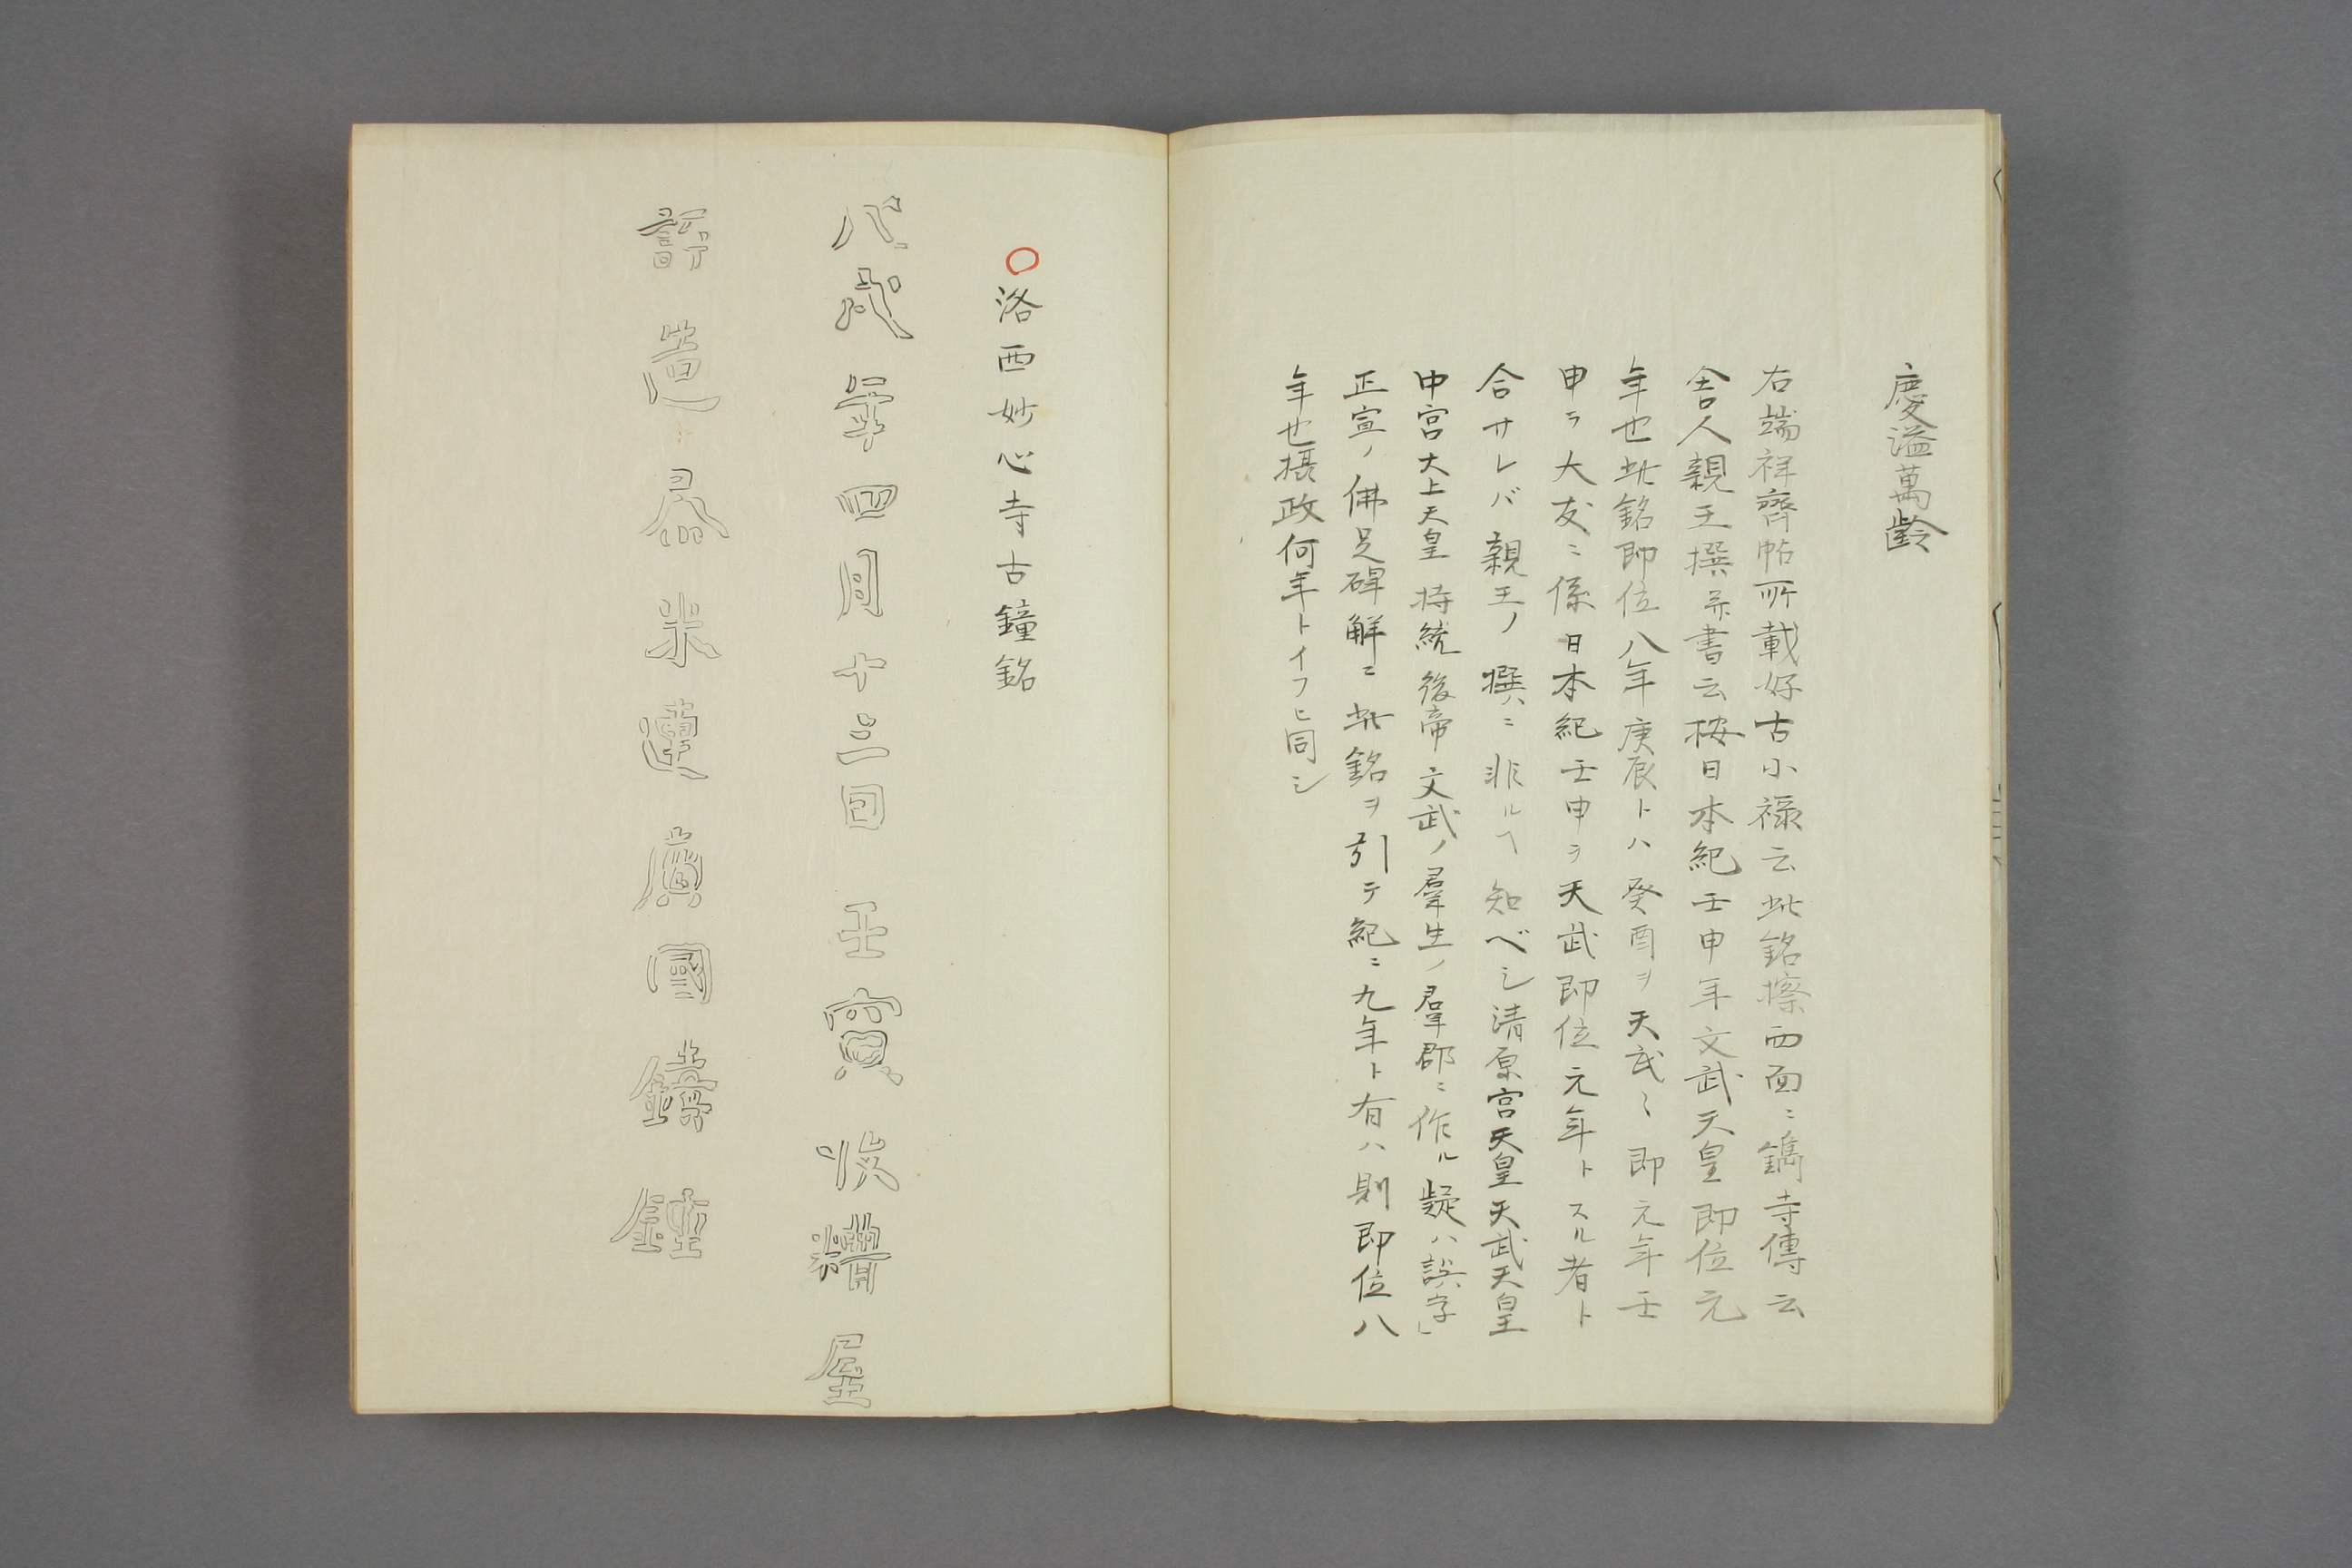 慶溢萬齡
右端祥齋帖所載好古小禄云此銘擦西面ニ鐫寺傳云
舎人親王撰并書云桉日本紀壬申年文武天皇即位元
年也此銘即位八年庚辰トハ癸酉ヲ天武ミ即元年壬
申ヲ大友ニ係日本紀壬申ヲ天武即位元年トスル者ト
合サレバ親王ノ撰ニ非ルヿ知ベシ清原宮天皇天武天皇
中宮大上天皇持統後帝文武ノ羣生ノ羣郡ニ作ル疑ハ誤字」
正宣ノ佛足碑解ニ此銘ヲ引テ紀ニ九年ト有ハ則即位八
年也摂政何年トイフニ同シ
○洛西妙心寺古鐘銘
戊戌年四月十三日 壬寅收糟屋
評造舂米連廣國鑄鐘